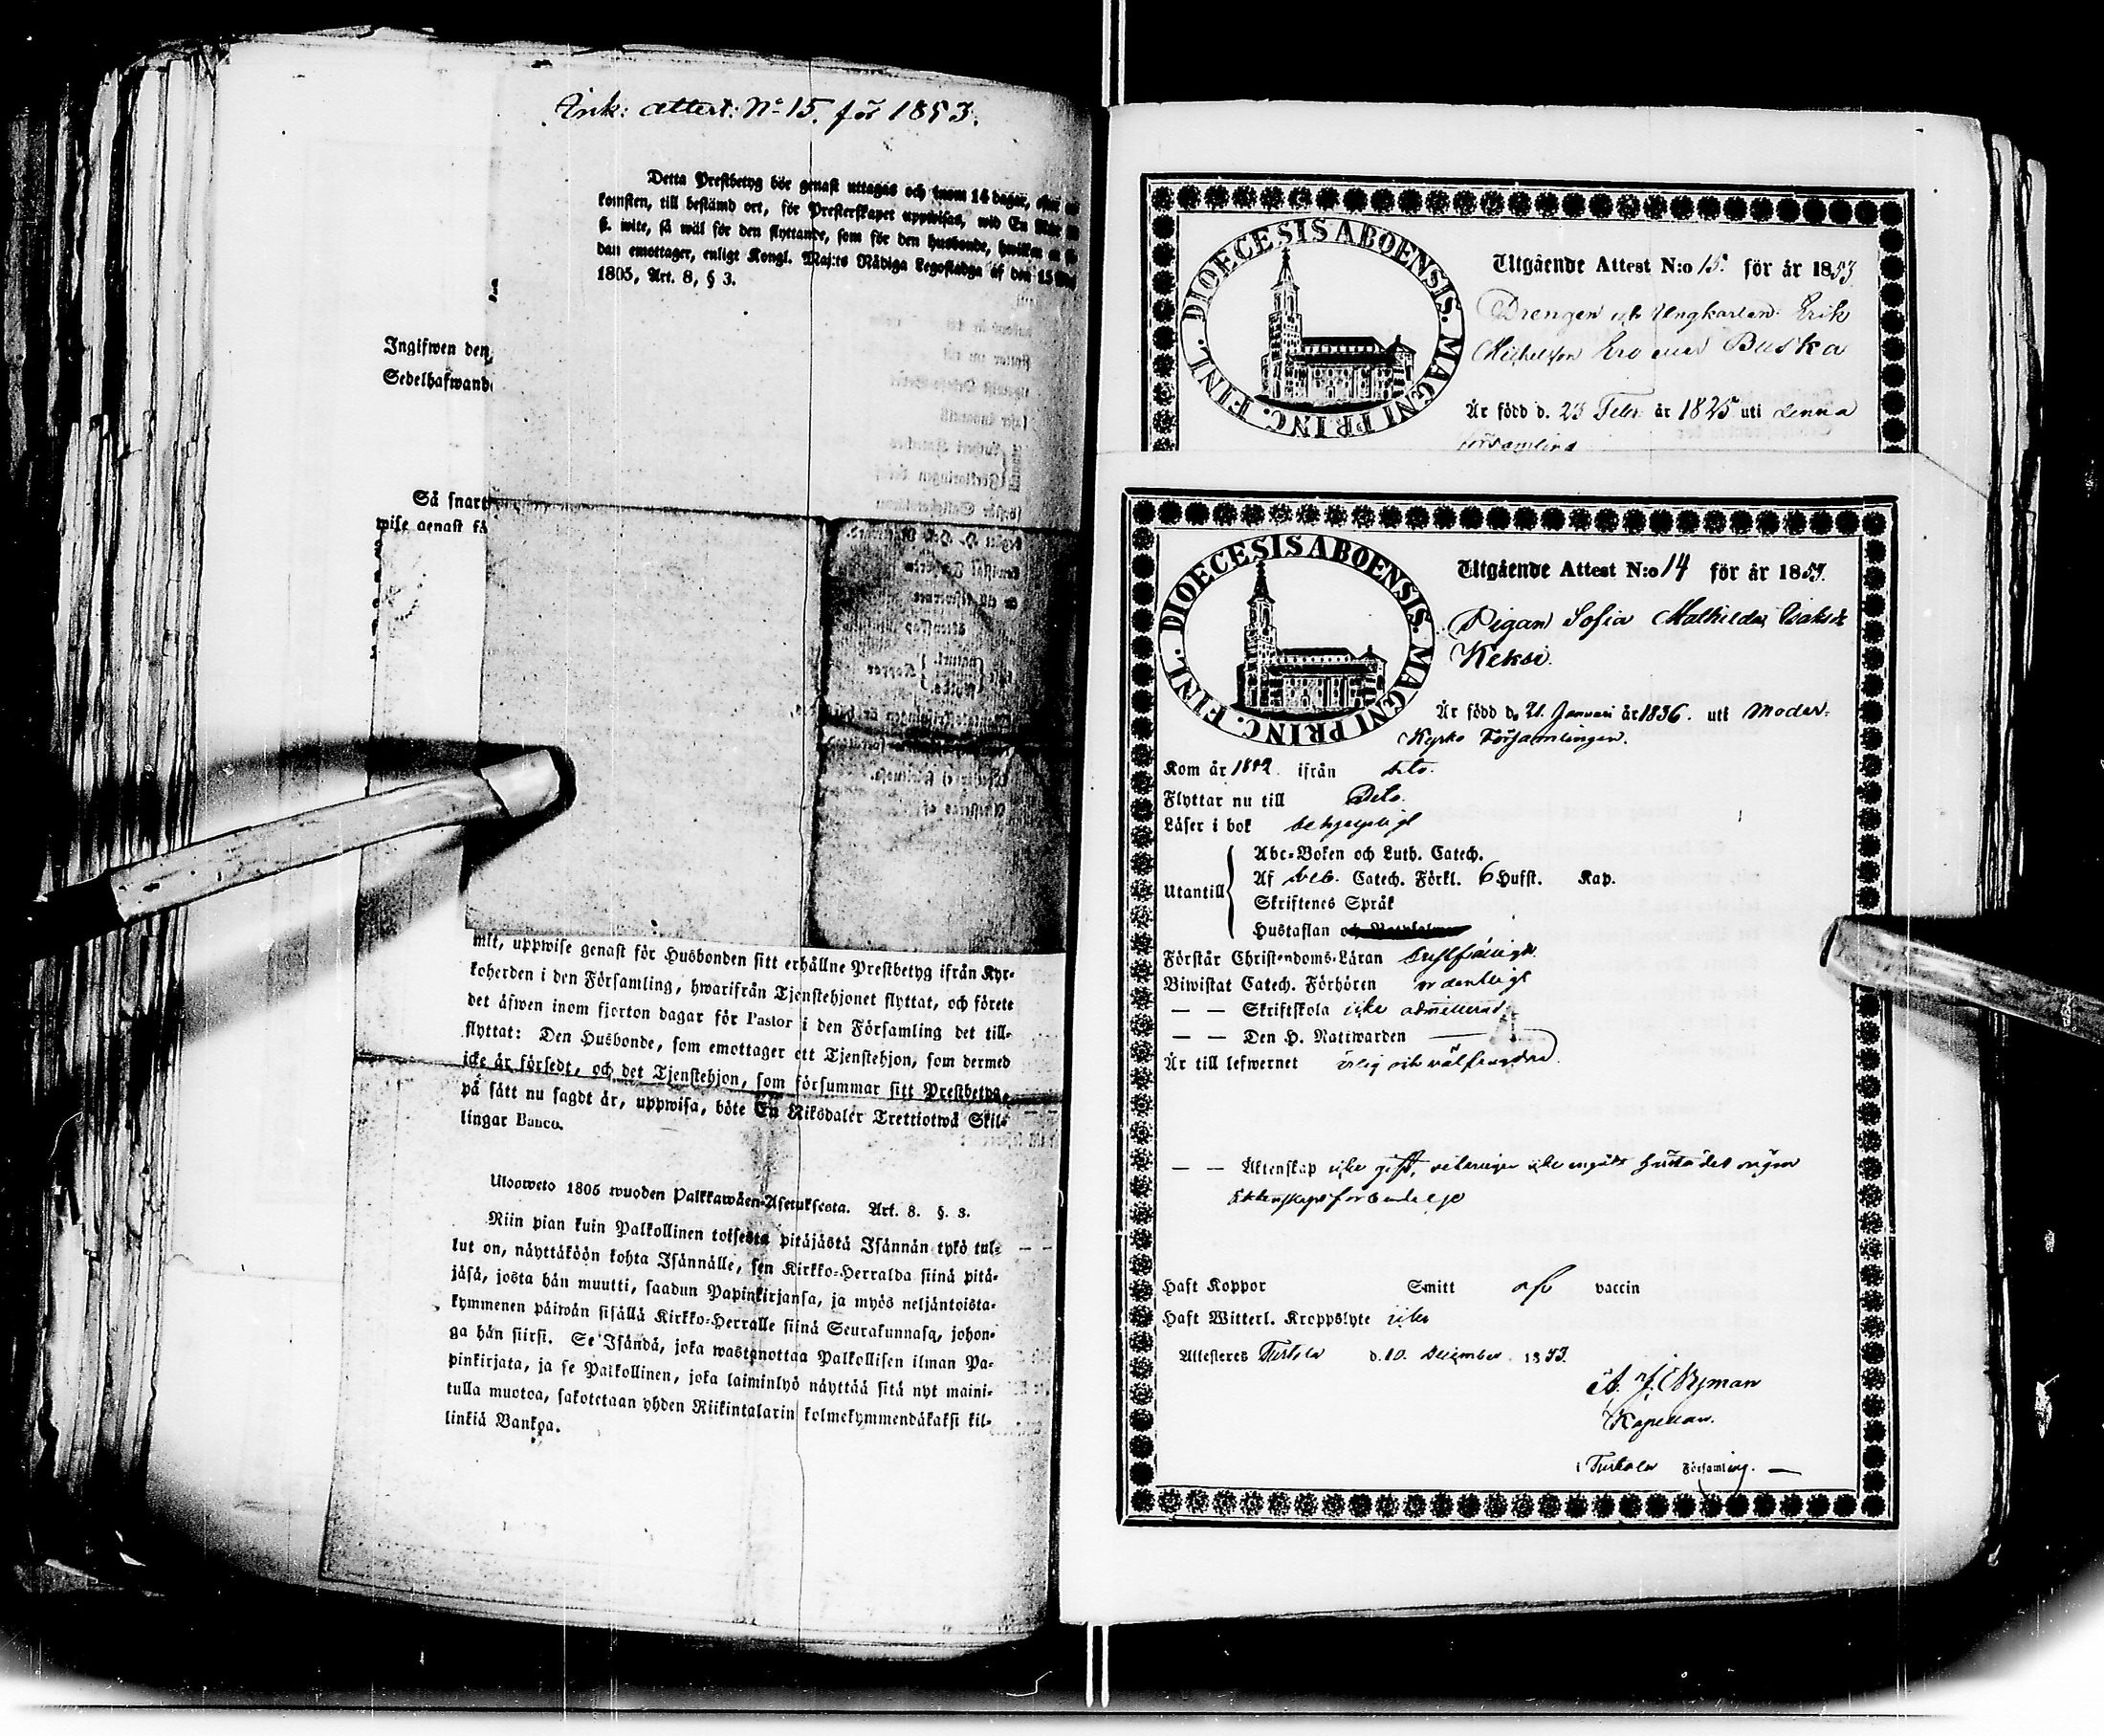 Ink: attest: No 15. för 1853.
Detta Prestbetyg bör genast uttagas och inom 14 dagar, efter
komsten, till bestämd ort, för Presterskapet uppwisas, wid En
ß. wite, så wäl för den flyttande, som för den husbonde, hwilken
dan emottager, enligt Kongl. Maj:ts Nådiga Legostadga af den 15
1805, Art. 8, § 3.
Ingifwen den
Sedelhafwand
Så snart
wise genast få
mit, uppwise genast för Husbonden sitt erhållne Prestbetyg ifrån Kyr-
koherden i den Församling, hwarifrån Tjenstehjonet flyttat, och förete
det äfwen inom fjorton dagar för Pastor i den Församling det till-
flyttat: Den Husbonde, som emottager ett Tjenstehjon, som dermed
icke är försedt, och det Tjenstehjon, som försummar sitt Prestbetyg,
på sätt nu sagdt är, uppwisa, böte En Riksdaler Trettiotwå Skil-
lingar Banco.
Ulosweto 1805 wuoden Palkkawäen-Asetuksesta. Art. 8. §. 3.
Niin pian kuin Palkollinen toisesta pitäjästä Isännän tykö tul-
lut on, näyttäköön kohta Isännälle, sen Kirkko-Herralda siinä pitä-
jäsä, josta hän muutti, saadun Papinkirjansa, ja myös neljäntoista-
kymmenen päiwän sisällä Kirkko-Herralle siinä Seurakunnasa, johon-
ga hän siirsi. Se Isändä, joka wastanottaa Palkollisen ilman Pa-
pinkirjata, ja se Palkollinen, joka laiminlyö näyttää sitä nyt maini-
tulla muotoa, sakotetaan yhden Riikintalarin kolmekymmendäkaksi kil-
linkiä Bankoa.
DIOECESIS ABOENSIS. MAGNI PRINC. FINL.
Utgående Attest N:o 15. för år 1853
Drengen och Ungkarlen Erik
Michelsson Buska
Är född d. 23 Febr. år 1825 uti denna
församling
DIOECESIS ABOENSIS. MAGNI PRINC. FINL.
Utgående Attest N:o 14 för år 1853.
Pigan Sofia Mathilda Isaksd:
Keksi.
Är född d. 21. Januari år 1836. uti Moder-
Kyrko Församlingen.
Kom år ifrån dito.
Flyttar nu till Dito.
Läser i bok begripligt
Utantill
Abc-Boken och Luth. Catech.
Af Catech. Förkl. 6 Hufst. Kap.
Skriftenes Språk
Hustaflan
Förstår Christendoms-Läran
Biwistat Catech. Förhören ordentligt
— — Skriftskola icke admitterad
— — Den H. Nattwarden —
Är till lefwernet ärlig och välfrejdad.
— — Äktenskap icke gift, veterligen icke ingått hinder
äktenskapsförbindelse
Haft Koppor Smitt af vaccin
Haft Witterl. Kroppslyte icke
Attesteres Turtola d. 10. December 1853.
Nyman
Kapellan.
i Turtola Församling. —